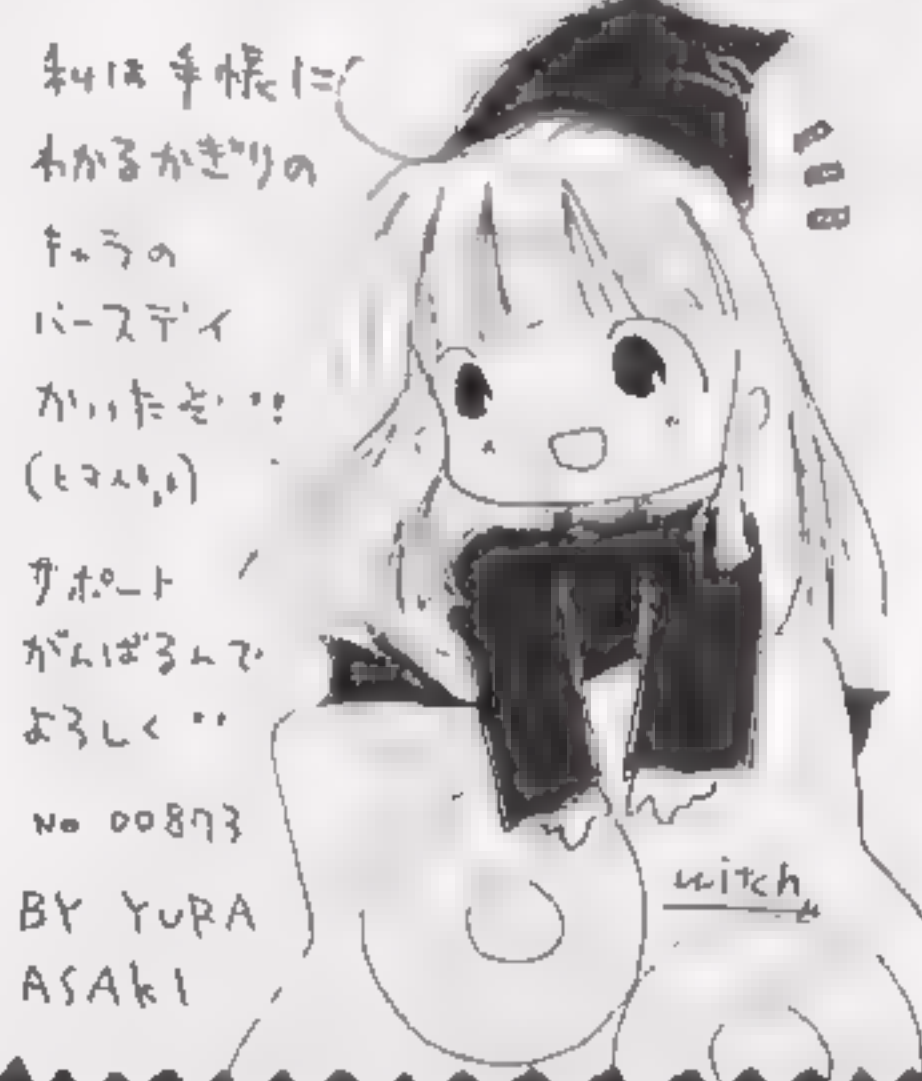 私は手帳に
わかるかぎりの
キャラの
バースデイ
かいたぞ!!
(ヒマ人
サポート
がんばるんで
よろしく!!
No 00873
BY YURA
ASAKI
witch